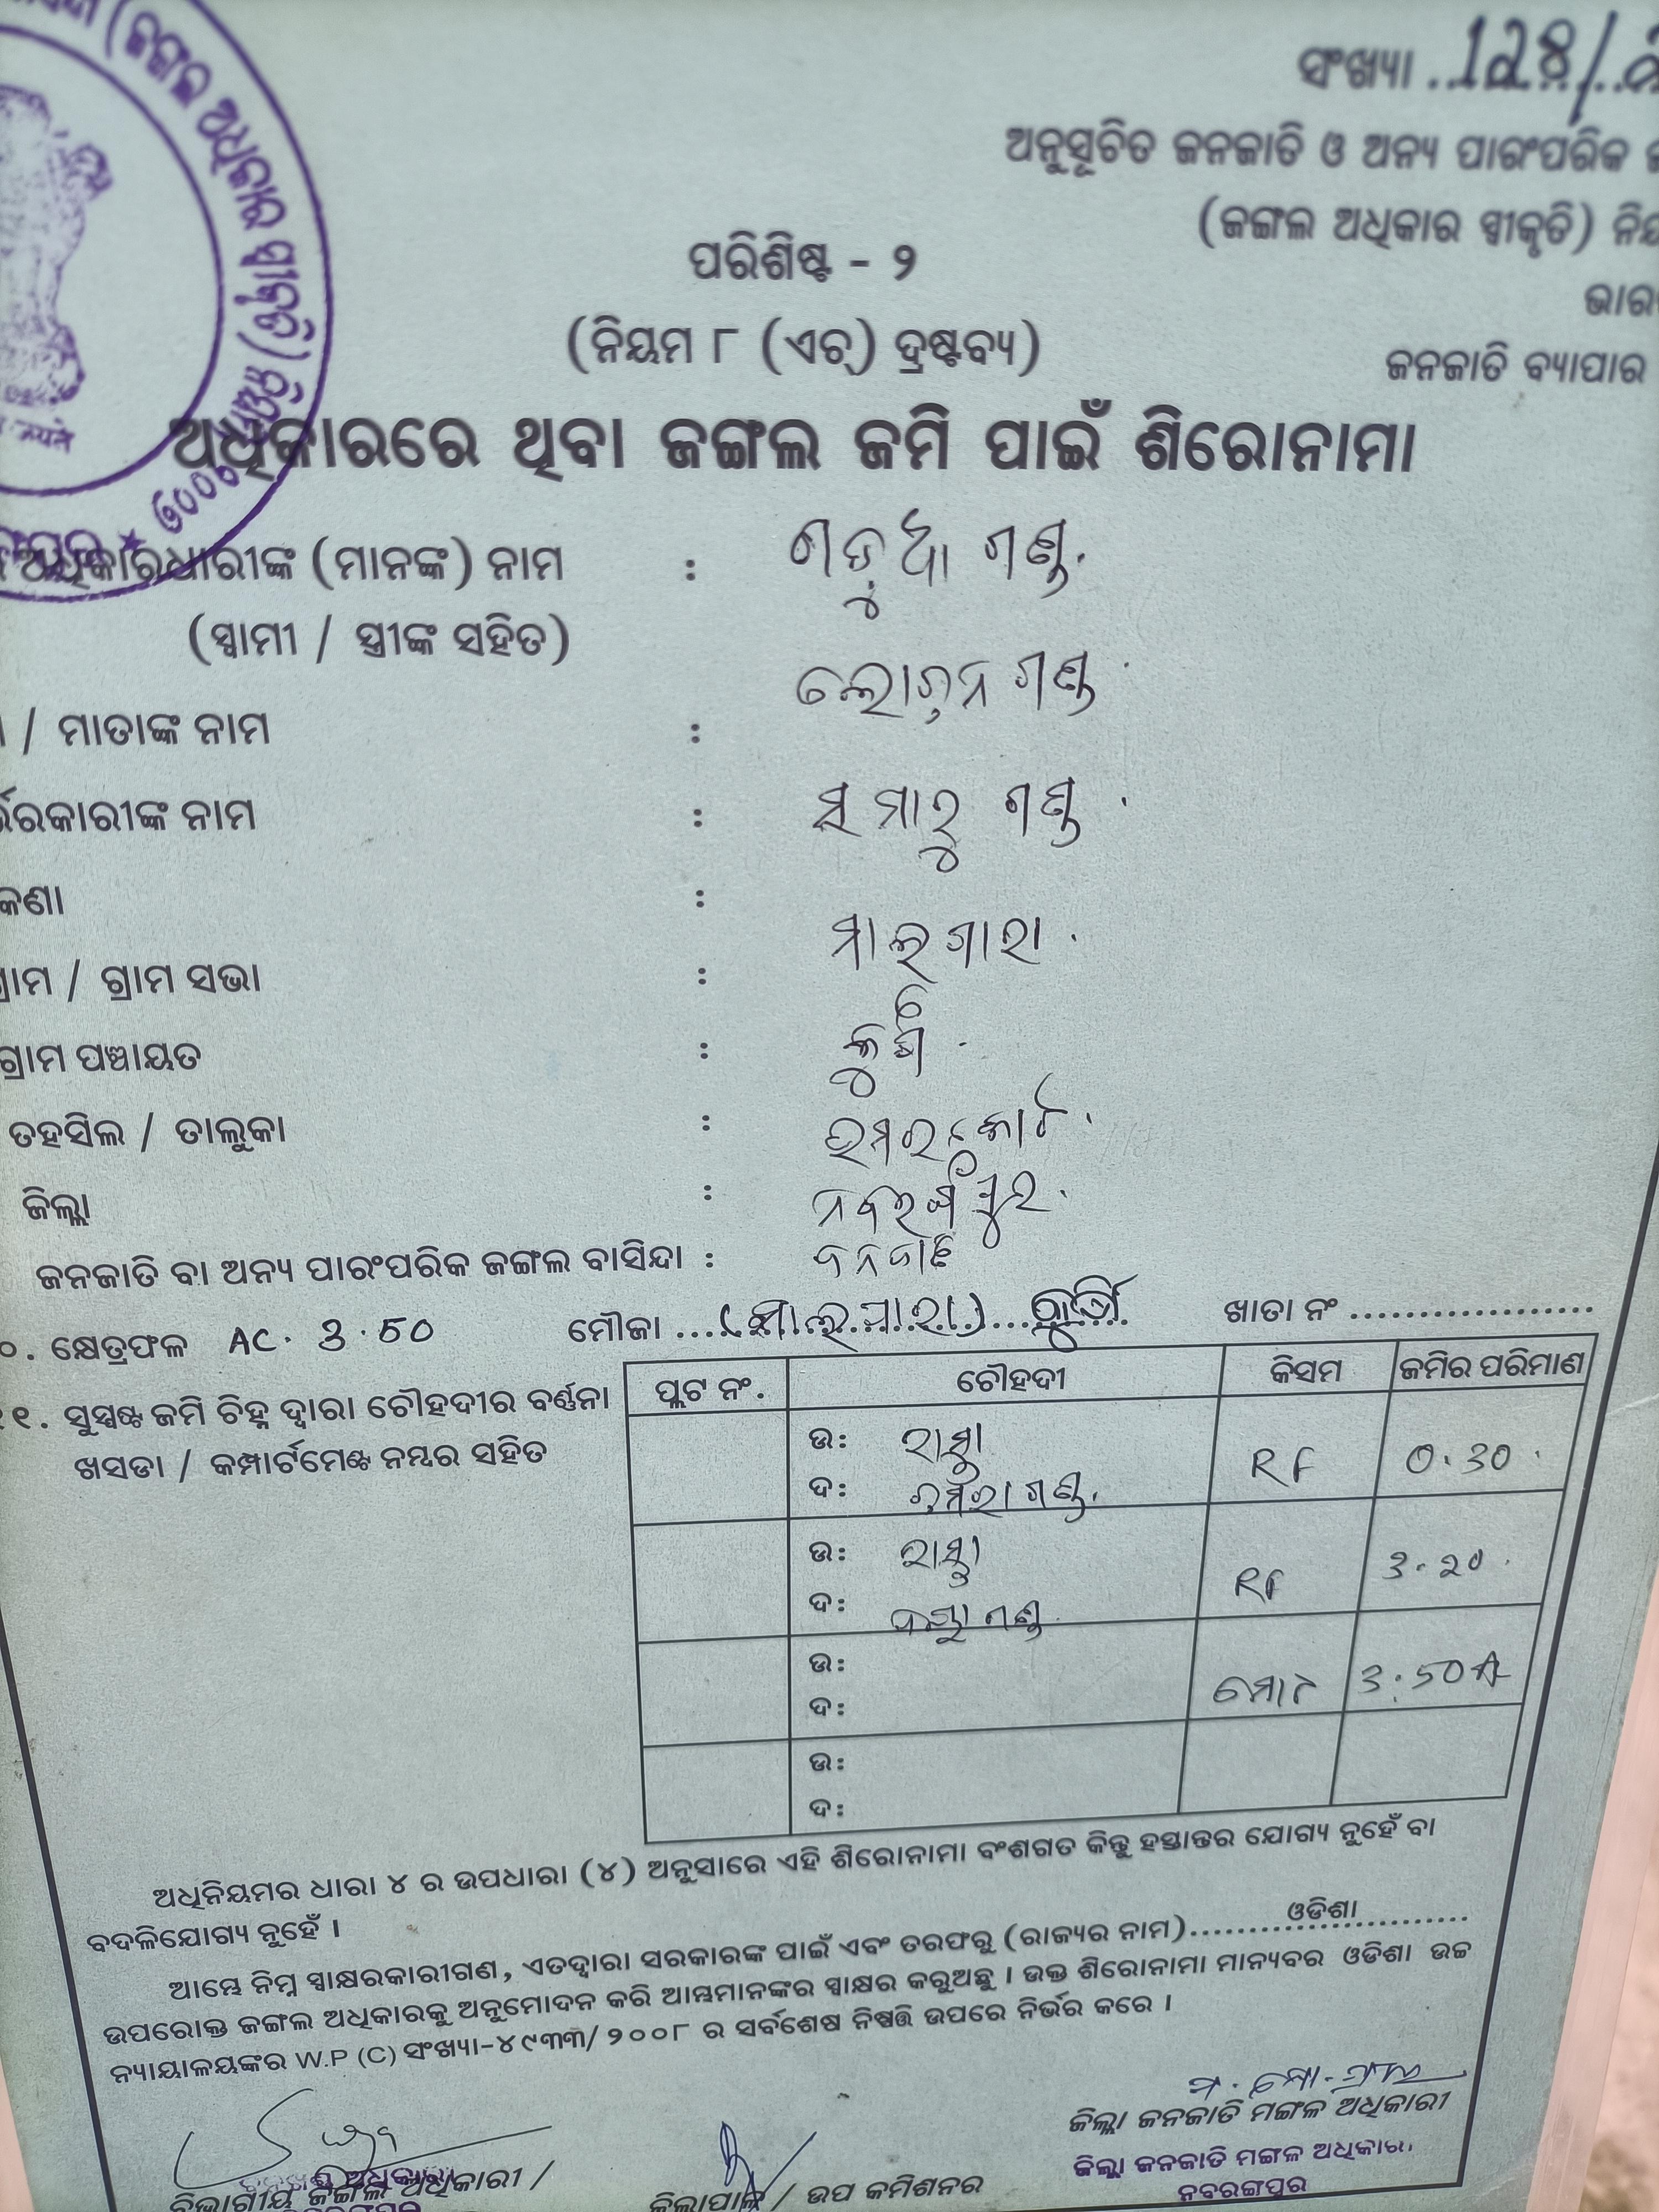 (ଜଙ୍ଗଲ ଅଧିକାର
ସଂଖ୍ୟା
ଅନୁସୂଚିତ ଜନଜାତି ଓ ଅନ୍ୟ ପାରଂପରିକ
(ଜଙ୍ଗଲ ଅଧିକାର ସ୍ୱୀକୃତି)
ପରିଶିଷ୍ଟ - ୨
(ନିୟମ ୮ (ଏଚ୍) ଦ୍ରଷ୍ଟବ୍ୟ)
ଜନଜାତି ବ୍ୟାପାର
ଅଧିକାରରେ ଥିବା ଜଙ୍ଗଲ ଜମି ପାଇଁ ଶିରୋନାମା
ଅଧିକାରଧାରୀଙ୍କ (ମାନଙ୍କ) ନାମ : ଗଣ୍ଡ
(ସ୍ୱାମୀ / ସ୍ତ୍ରୀଙ୍କ ସହିତ) ଗଣ୍ଡ
/ ମାତାଙ୍କ ନାମ :
ନାମ : ସମାରୁ ଗଣ୍ଡ
:
/ ଗ୍ରାମ ସଭା : ମାଲଗାରା
ଗ୍ରାମ ପଞ୍ଚାୟତ :
ତହସିଲ / ତାଲୁକା : ଉମରକୋଟ
ଜିଲ୍ଲା : ନବରଙ୍ଗପୁର
ଜନଜାତି ବା ଅନ୍ୟ ପାରଂପରିକ ଜଙ୍ଗଲ ବାସିନ୍ଦା : ଜନଜାତି
୦. କ୍ଷେତ୍ରଫଳ AC. 3.50 ମୌଜା (ମାଲଗାରା) ଖାତା ନଂ ..................
୧୧. ସୁସ୍ପଷ୍ଟ ଜମି ଚିହ୍ନ ଦ୍ୱାରା ଚୌହଦୀର ବର୍ଣ୍ଣନା
ଖସଡା / କମ୍ପାର୍ଟମେଣ୍ଟ ନମ୍ବର ସହିତ
ପ୍ଲଟ ନଂ. ଚୌହଦୀ କିସମ ଜମିର ପରିମାଣ
ଉ: ରାସ୍ତା RF 0.30
ଦ: ଗଣ୍ଡ
ଉ: ରାସ୍ତା RF 3.20
ଦ: ଗଣ୍ଡ
ଉ: ମୋଟ 3.50A
ଦ:
ଉ:
ଦ:
ଅଧିନିୟମର ଧାରା ୪ ର ଉପଧାରା (୪) ଅନୁସାରେ ଏହି ଶିରୋନାମା ବଂଶଗତ କିନ୍ତୁ ହସ୍ତାନ୍ତର ଯୋଗ୍ୟ ନୁହେଁ ବା
ବଦଳିଯୋଗ୍ୟ ନୁହେଁ ।
ଆମ୍ଭେ ନିମ୍ନ ସ୍ୱାକ୍ଷରକାରୀଗଣ, ଏତଦ୍ୱାରା ସରକାରଙ୍କ ପାଇଁ ଏବଂ ତରଫରୁ (ରାଜ୍ୟର ନାମ) ଓଡିଶା
ଉପରୋକ୍ତ ଜଙ୍ଗଲ ଅଧିକାରକୁ ଅନୁମୋଦନ କରି ଆମ୍ଭମାନଙ୍କର ସ୍ୱାକ୍ଷର କରୁଅଛୁ । ଉକ୍ତ ଶିରୋନାମା ମାନ୍ୟବର ଓଡିଶା ଉଚ୍ଚ
ନ୍ୟାୟାଳୟଙ୍କର W.P (C) ସଂଖ୍ୟା-୪୯୩୩/୨୦୦୮ ର ସର୍ବଶେଷ ନିଷ୍ପତ୍ତି ଉପରେ ନିର୍ଭର କରେ ।
ଜିଲ୍ଲା ଜନଜାତି ମଙ୍ଗଳ ଅଧିକାରୀ
ଜିଲ୍ଲା ଜନଜାତି ମଙ୍ଗଳ ଅଧିକାରୀ
ବିଭାଗୀୟ ଜଙ୍ଗଲ ଅଧିକାରୀ / ଜିଲାପାଳ / ଉପ କମିଶନର ନବରଙ୍ଗପୁର